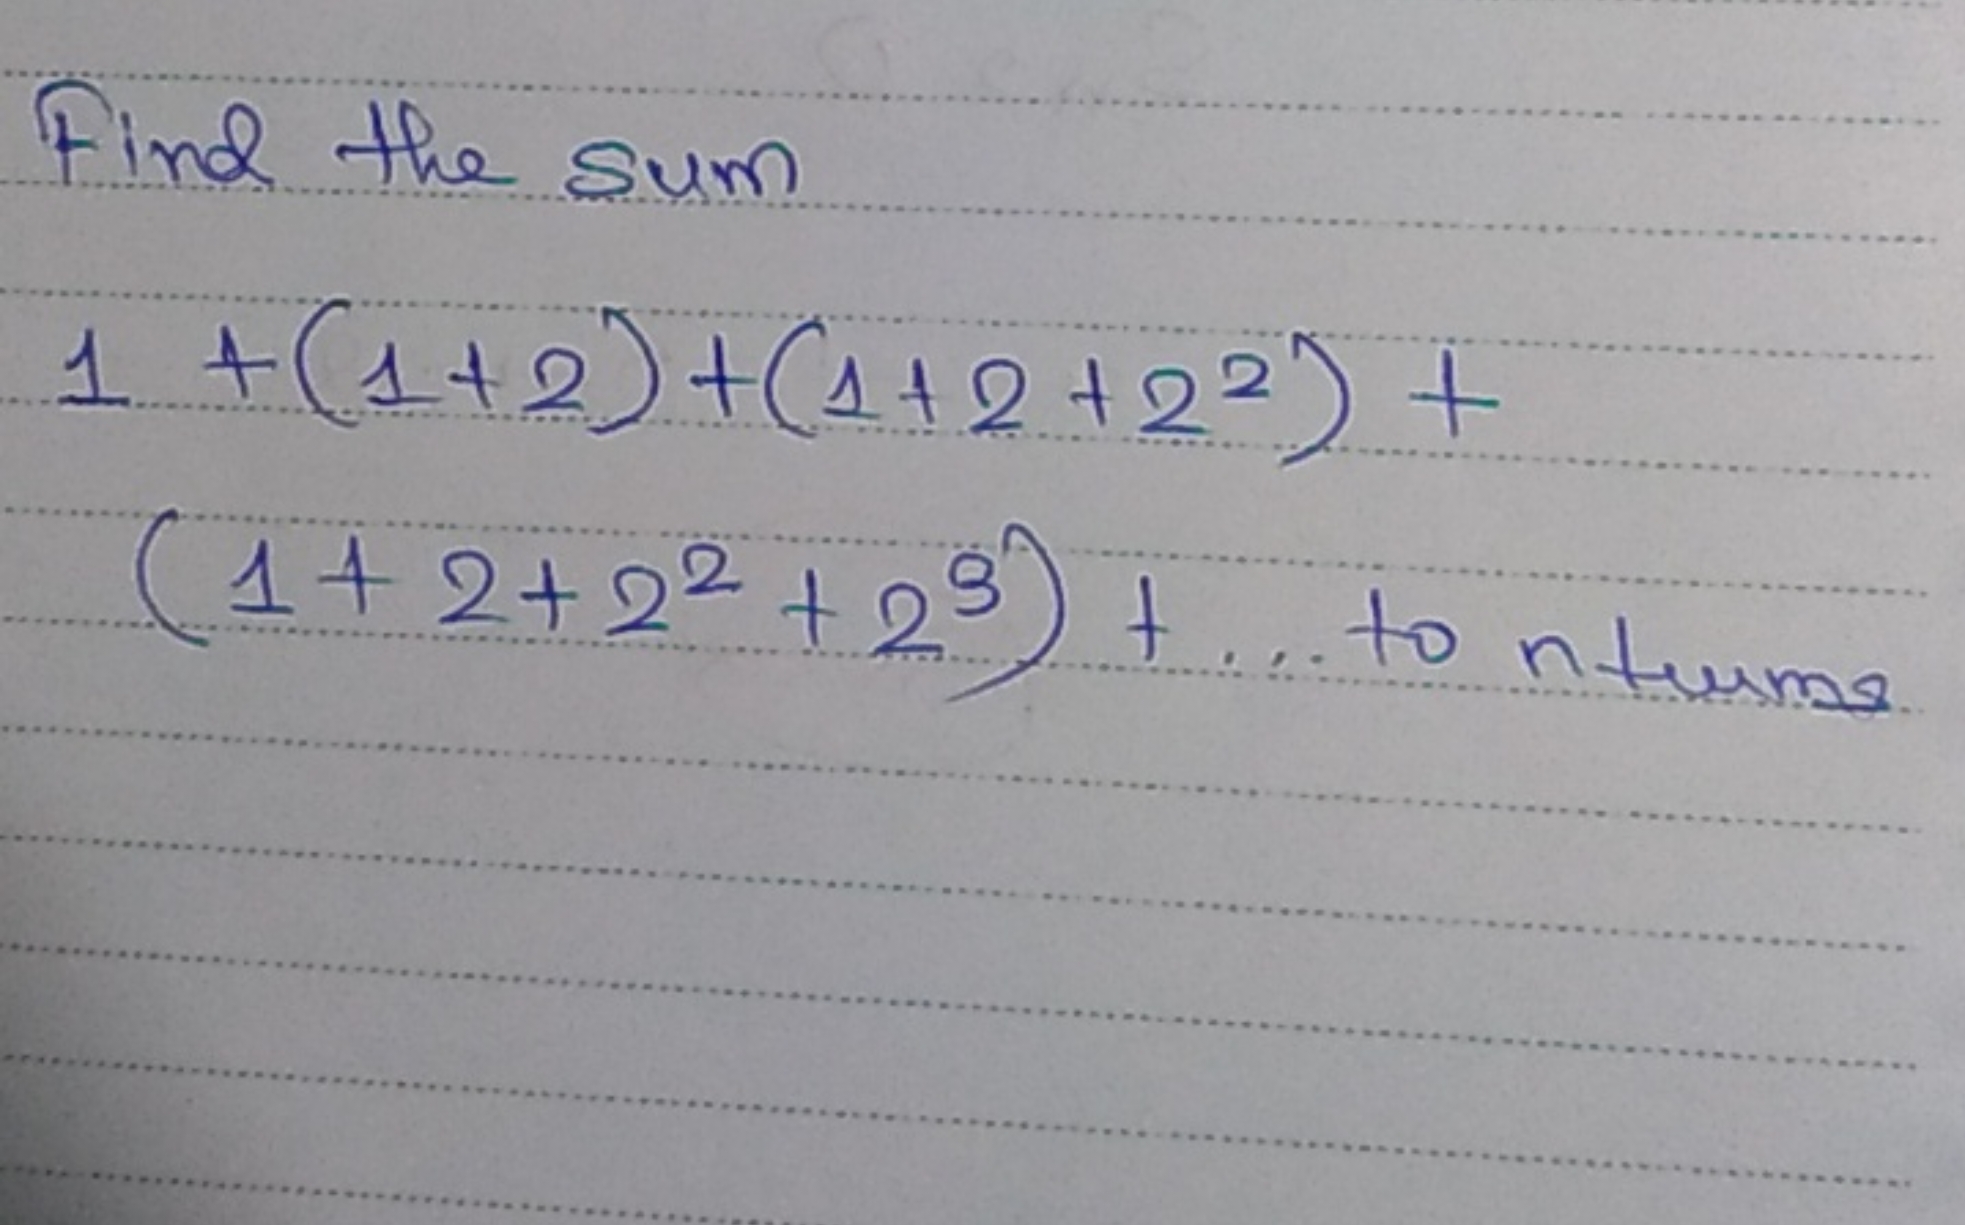 Find the sum
1 + (1+2) + (1+2+2²) +
(1+2+2²+2³) + ... to n terms